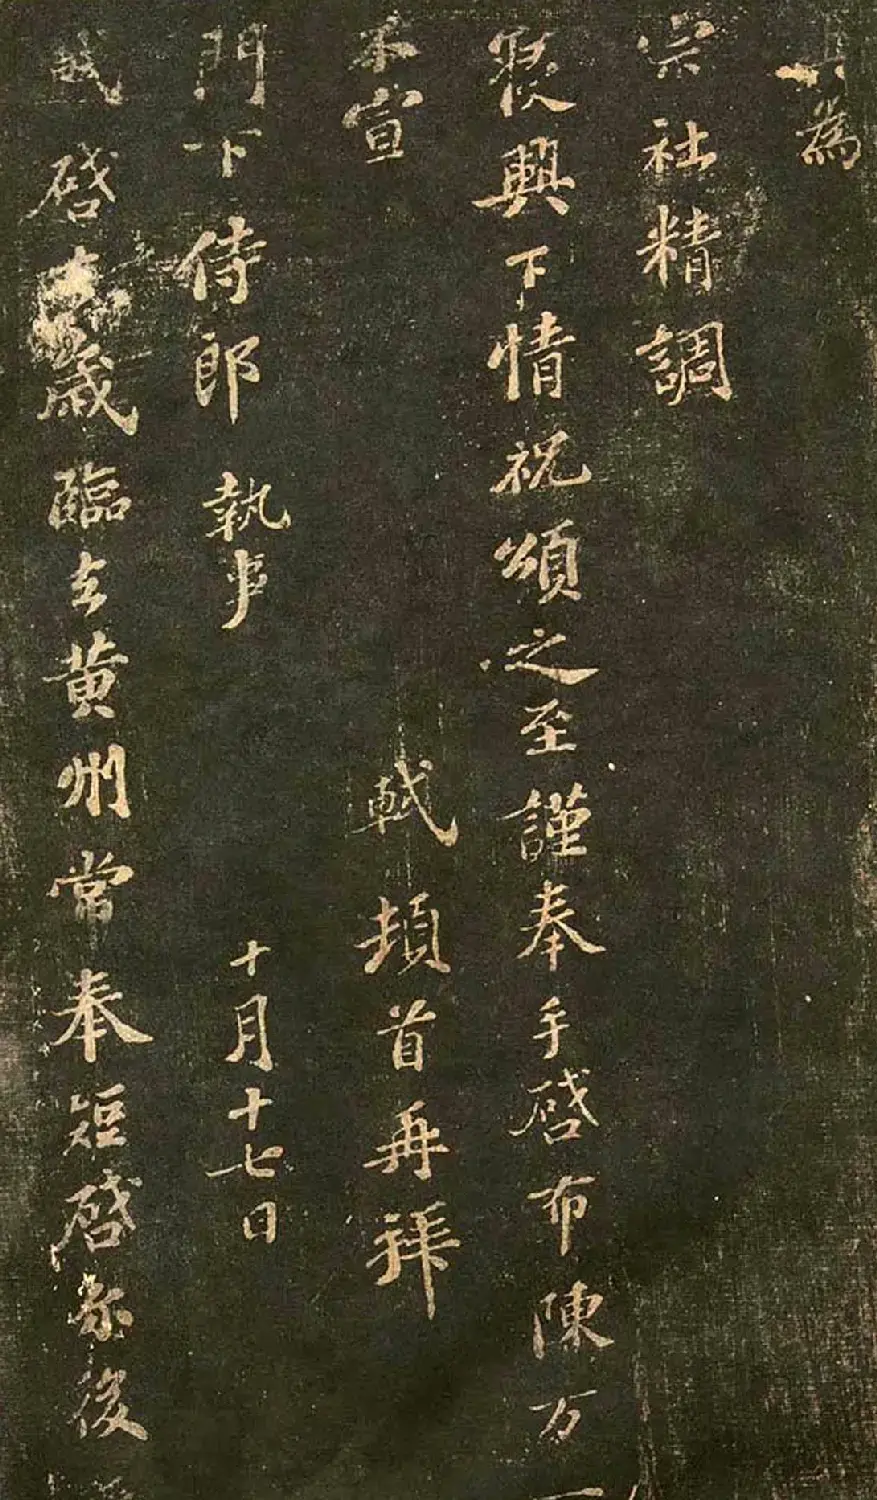 為
宗社精調
寢興下情祝頌之至謹奉手啓布陳万一
不宣 軾頓首再拜
門下侍郎 執事 十月十七日
軾啓去歲臨去黄州常奉短啓尒後